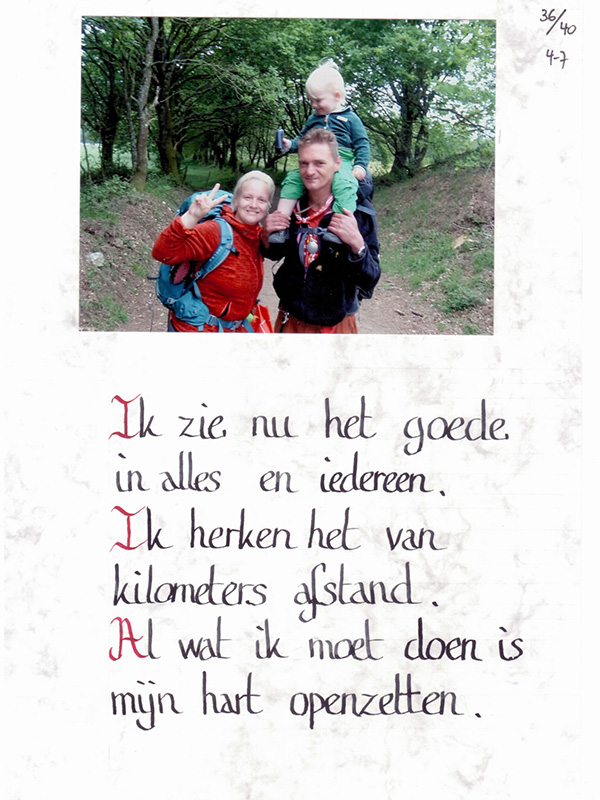 36/40
4-7
Ik zie nu het goede
in alles en iedereen.
Ik herken het van
kilometers afstand.
Al wat ik moet doen is
mijn hart openzetten.